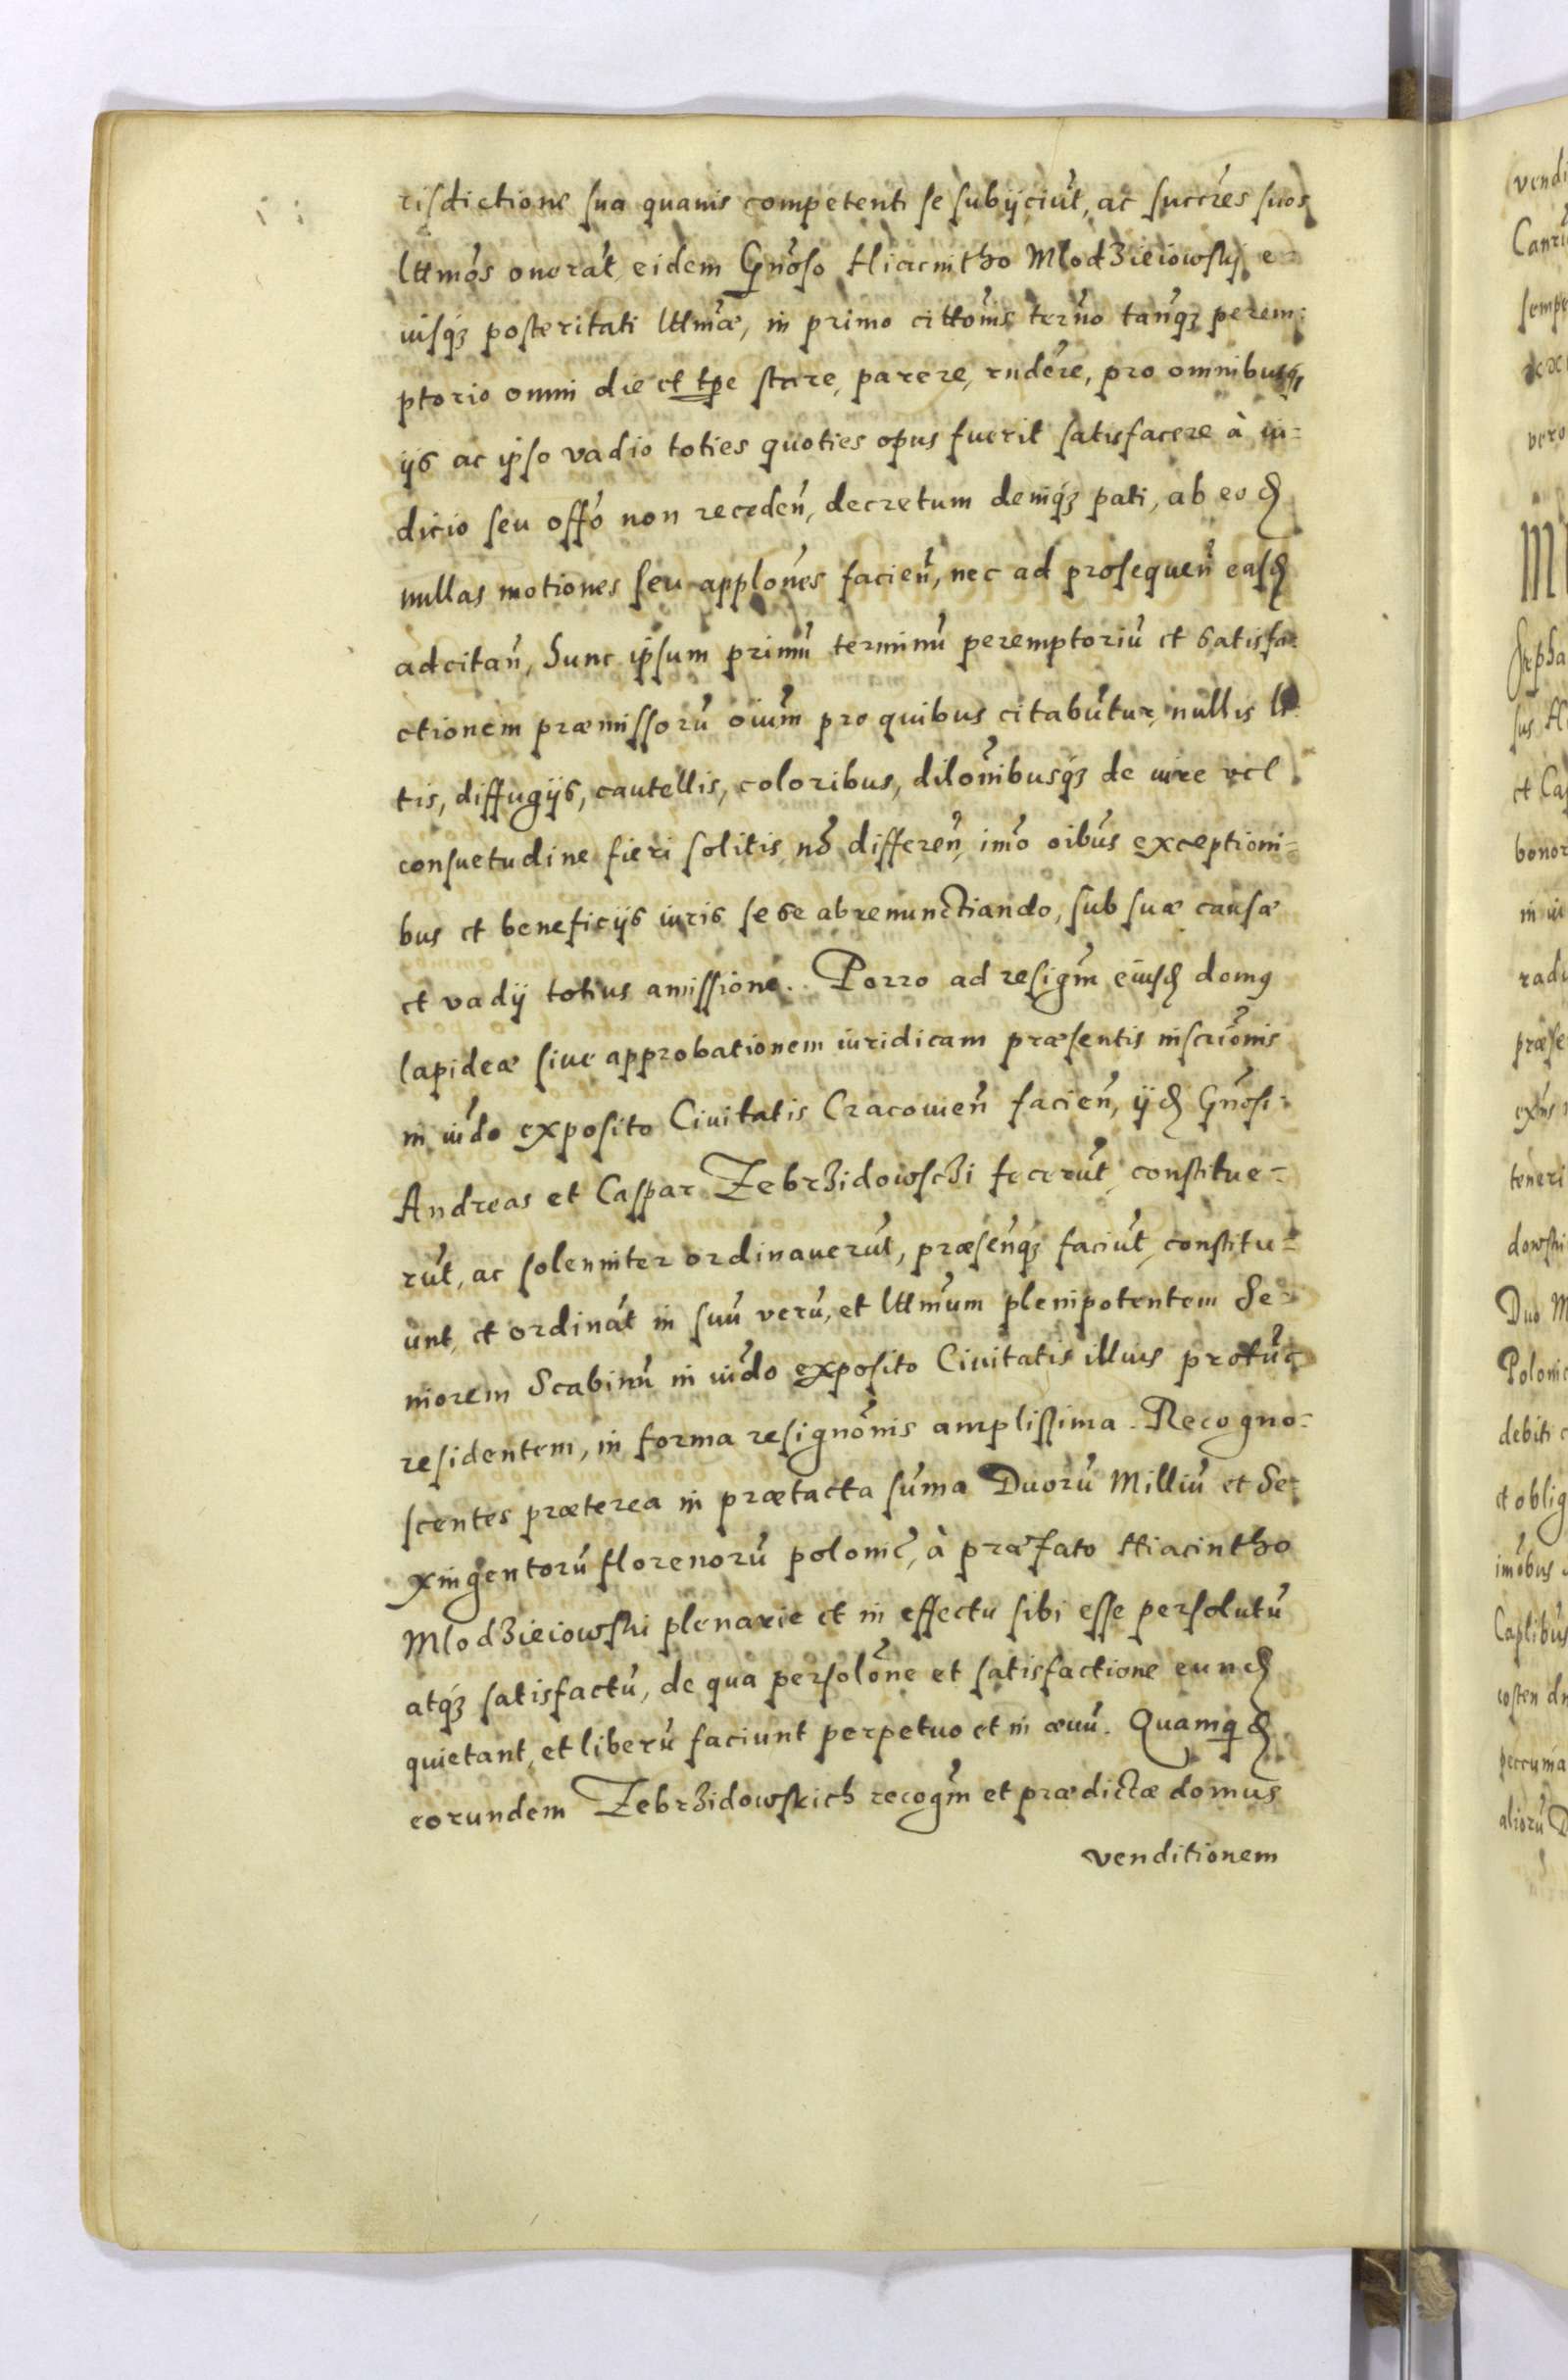 risdictione sua quauis competenti se subijciūt, ac succres̄ suos
lttmōs onerāt, eidem Gn̄oso Hiacintho Mlodzieiowski e-
iusq₃ posteritati lttmæ, in primo cittōnis term̄o tanq̄₃ perem:
ptorio omni die et tp̲e stare, parere, rndēre, pro omnibusq₃
ijs ac ipso vadio toties quoties opus fuerit satisfacere à iu=
dicio seu offō non receden̄, decretum deniq₃ pati, ab eoꝺ
nullas motiones seu applōnes facien̄, nec ad prosequen̄ easꝺ
adcitan̄, hunc ipsum primū terminū peremptoriū et satisfa-
ctionem præmissorū oiūm pro quibus citabūtur, nullis li-
tis, diffugijs, cautellis, coloribus, dilōnibusq₃ de iure vel
consuetudine fieri solitis nō differen̄, imō oibūs exceptioni=
bus et beneficijs iuris sese abrenunctiando, sub suæ causæ
et vadij totius amissione. Porro ad resigm̄ eiusꝺ domus
lapideæ siue approbationem iuridicam præsentis inscriōnis
in iūdo exposito Ciuitatis Cracouien̄ facien̄, ijꝺ Gn̄osi:
Andreas et Caspar Zebrzidowschi fecerūt, constitue=
rūt, ac solenniter ordinauerūt, præsenq̄₃ faciūt, constitu=
unt, et ordināt in suū verū, et lttmūm plenipotentem Se-
niorem Scabinū in iūdo exposito Ciuitatis illius protūc
residentem, in forma resignōnis amplissima. Recogno=
scentes præterea in prætacta sūma Duorū Milliū et Se-
xingentorū florenorū polonic̄, à præfato Hiacintho
Mlodzieiowski plenarie et in effectu sibi esse persolutū
atq₃ satisfactū, de qua persolōne et satisfactione eunꝺ
quietant, et liberū faciunt perpetuo et in æuū. Quamquidꝺ
eorundem Zebrzidowskich recogm̄ et prædictæ domus
venditionem